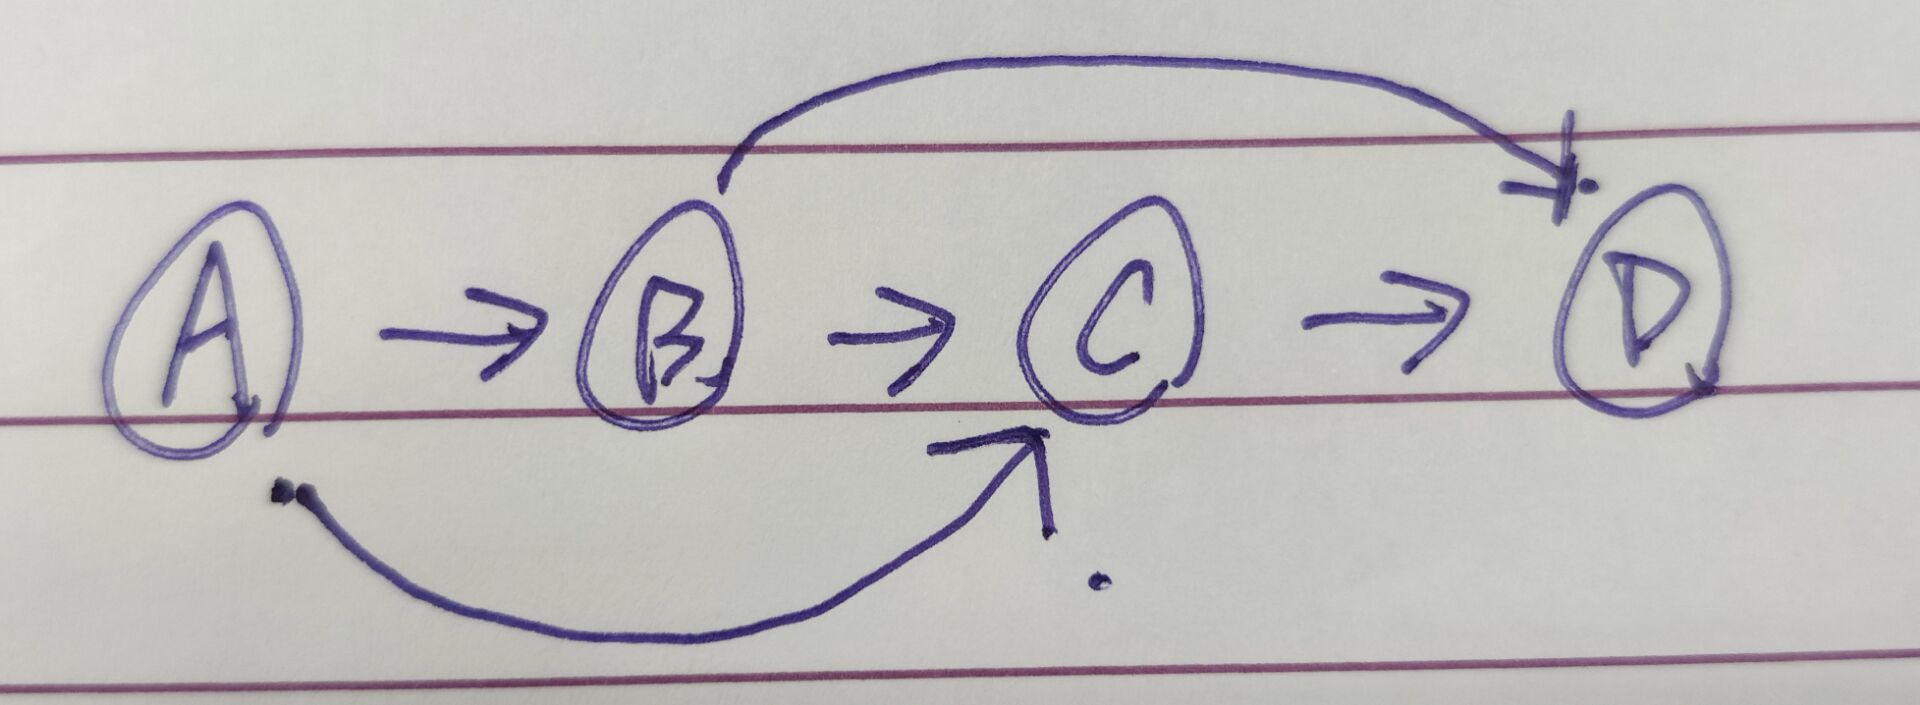 A → B → C → D